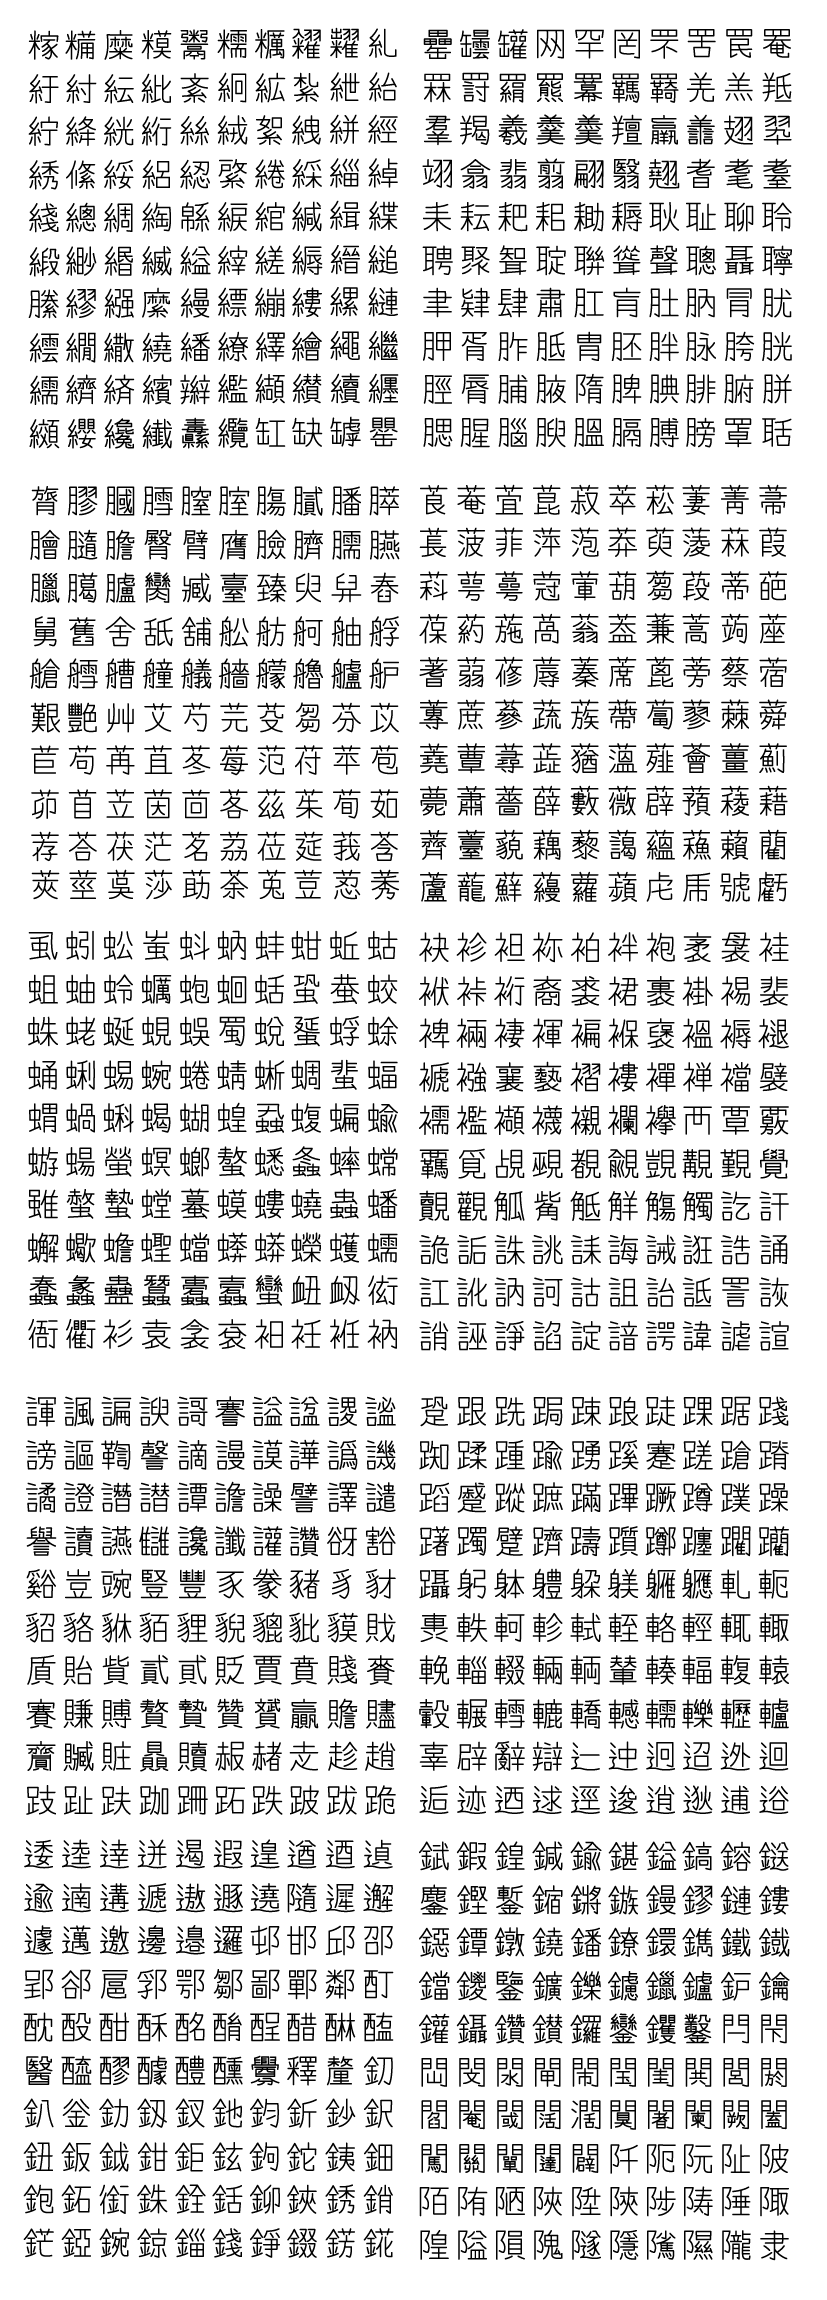 糘糒糜糢鬻糯糲糴糶糺
紆紂紜紕紊絅絋紮紲紿
紵絆絖絎絲絨絮絏絣經
綉絛綏絽綛綮綣綵緇綽
綫總綢綯緜綟綰緘緝緤
緞緲緡縅縊縡縒縟縉縋
縢繆繦縻縵縹繃縷縲縺
繧繝繖繞繙繚繹繪繩繼
繻繽辮纈纉續纒
纐纓纔纖纛纜缸缺罅罌
罍罎罐网罕罔罘罟罠罨
罧罸羂羆羃羈羇羌羔羝
羣羯羲羹羶羸譱翅翆
翊翕翡翦翩翳翹耆耄耋
耒耘耙耜耡耨耿耻聊聆
聘聚聟聢聨聳聲聰聶聹
聿肄肆肅肛肓肚肭冐肬
胛胥胙胝胄胚胖脉胯胱
脛脣脯腋隋脾腆腓腑胼
腮腥腦腴膃膈膊膀罩聒
膂膠膕膤膣腟膓膩膰膵
膾膸膽臀臂膺臉臍臑臙
臘臈臚臠臧臺臻臾舁舂
舅舊舍舐舖舩舫舸舳艀
艙艘艚艟艤艢艨艪艫舮
艱艷艸艾芍芫芟芻芬苡
苣苟苒苴苳莓范苻苹苞
茆苜茉茵茴茖茲茱荀茹
荐荅茯茫茗茘莅莚莪莟
莢莖莫莎莇荼莵荳荵莠
莨菴萓菎菽萃菘萋菁菷
萇菠菲萍萢莽萸蔆菻葭
萪萼蕚蒄葷葫蒭葮蒂葩
葆葯葹萵蓊葢蒹蒿蒟蓙
蓍蒻蓚蓐蓁蓆蓖蒡蔡蓿
蓴蔗蔘蔬蔟蔕蔔蓼蕀蕣
蕘蕈蕁蘂蕕薀薤薈薑薊
薨蕭薔薛藪薇薜蕷蕾藉
薺藹藐藕藜藹蘊蘓藾藺
蘆蘢蘚蘰蘿蘋虍乕號虧
虱蚓蚣蚩蚪蚋蚌蚶蚯蛄
蛆蚰蛉蠣蚫蛔蛞蛩蛬蛟
蛛蛯蜒蜆蜈蜀蜕蜑蜉蜍
蛹蜊蜴蜿蜷蜻蜥蜩蜚蝠
蝟蝸蝌蝎蝴蝗蝨蝮蝙蝓
蝣蝪螢螟螂螯蟋螽蟀螳
雖螫蟄螳蟇蟆螻蟯蟲蟠
蟹蠍蟾蟶蟷蠎蟒蠑蠖蠕
蠢蠡蠱蠶蠹蠧蠻衄衂衒
衙衢衫袁衾袞衵衽袵衲
袂袗袒袮袙袢袍袤袰袿
袱裃裄裔裘裙裹褂裼裴
裨裲褄褌褊褓襃褞褥褪
褫襁襄褻褶褸襌襠襞
襦襤襭襪襯襴襷襾覃覈
覊覓覘覡覩覦覬覯覲覺
覽觀觚觜觝解觴觸訖訐
詭詬誅誂誄誨誡誑誥誦
訌訛訥訶詁詛詒詆詈詼
誚誣諍諂諚諳諤諱謔諠
諢諷諞諛謌謇謚諡謖謐
謗謳鞫謦謫謾謨譁譌譏
譎證譖譛譚譫譟譬譯譴
譽讀讌讎讒讖讙讚谺豁
谿豈豌豎豐豕豢豬豸豺
貂貉貅貊貍貎貔豼貘戝
貭貽貲貳貮貶賈賁賤賚
賽賺賻贅贄贊贇贏贍贐
齎贓賍贔贖赧赭赱趁趙
跂趾趺跏跚跖跌跛跋跪
跫跟跣跼踈踉跿踝踞踐
踟蹂踵踰踴蹊蹇蹉蹌蹐
蹈蹙蹤蹠蹣蹕蹶蹲蹼躁
躇躅躄躋躊躓躑躔躙躪
躡躬躰軆躱躾軅軈軋軛
軣軼軻軫軾輊輅輕輒輙
輓輜輟輛輌輦輳輻輹轅
轂輾轌轆轎轗轜轢轣轤
辜辟辭辯辷迚迥迢迯迴
逅迹迺逑逕逡逍逖逋逧
逶逵逹迸遏遐遑遒逎遉
逾遖遘遞遨遯遶隨遲邂
遽邁邀邊邉邏邨邯邱邵
郢郤扈郛鄂鄒鄙鄲鄰酊
酖酘酣酥酩酳酲醋醂醢
醫醯醪醵醴醺釁釋釐釖
釟釡釛釼釵釶鈞釿鈔鈬
鈕鈑鉞鉗鉅鉉鉤鉈銕鈿
鉋鉐銜銖銓銛鉚鋏銹銷
鋩錏鋺鍄錙錢錚錣錺錵
鉽鍜鍠鍼鍮鍖鎰鎬鎔鎹
鏖鏗鏨鏥鏘鏃鏝鏐鏈鏤
鐚鐔鐓鐃鐇鐐鐶鐫鐵鐡
鐺鑁鑒鑛鑠鑢鑞鑪鈩鑰
鑵鑷鑽鑚鑼鑾钁鑿閂閇
閊閔閖閘閙閠閨閧閭閼
閻閹閾闊濶闃闍闌闕闔
闖關闡闥闢阡阨阮阯陂
陌陏陋陜陞陝陟陦陲陬
隍隘隕隗隧隱隲隰隴隶